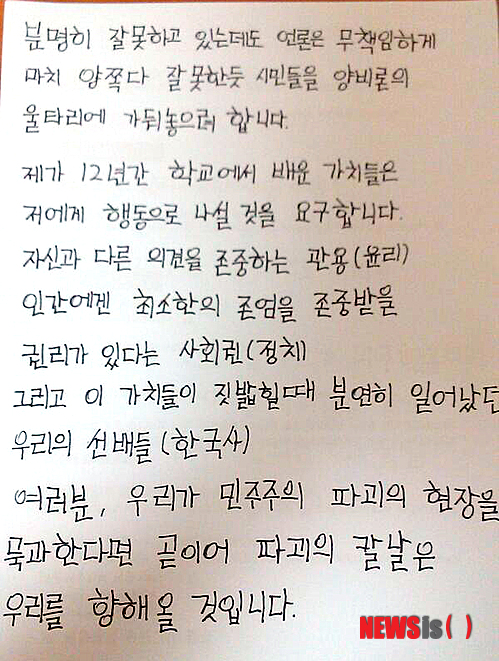 분명히 잘못하고 있는데도 언론은 무책임하게
마치 양쪽다 잘못한듯 시민들을 양비론의
울타리에 가둬놓으려 합니다.
제가 12년간 학교에서 배운 가치들은
저에게 행동으로 나설 것을 요구합니다.
자신과 다른 의견을 존중하는 관용(윤리)
인간에겐 최소한의 존엄을 존중받을
권리가 있다는 사회권(정치)
그리고 이 가치들이 짓밟힐때 분연히 일어났던
우리의 선배들(한국사)
여러분, 우리가 민주주의 파괴의 현장을
묵과한다면 곧이어 파괴의 칼날은
우리를 향해올 것입니다.
NEWSis( )